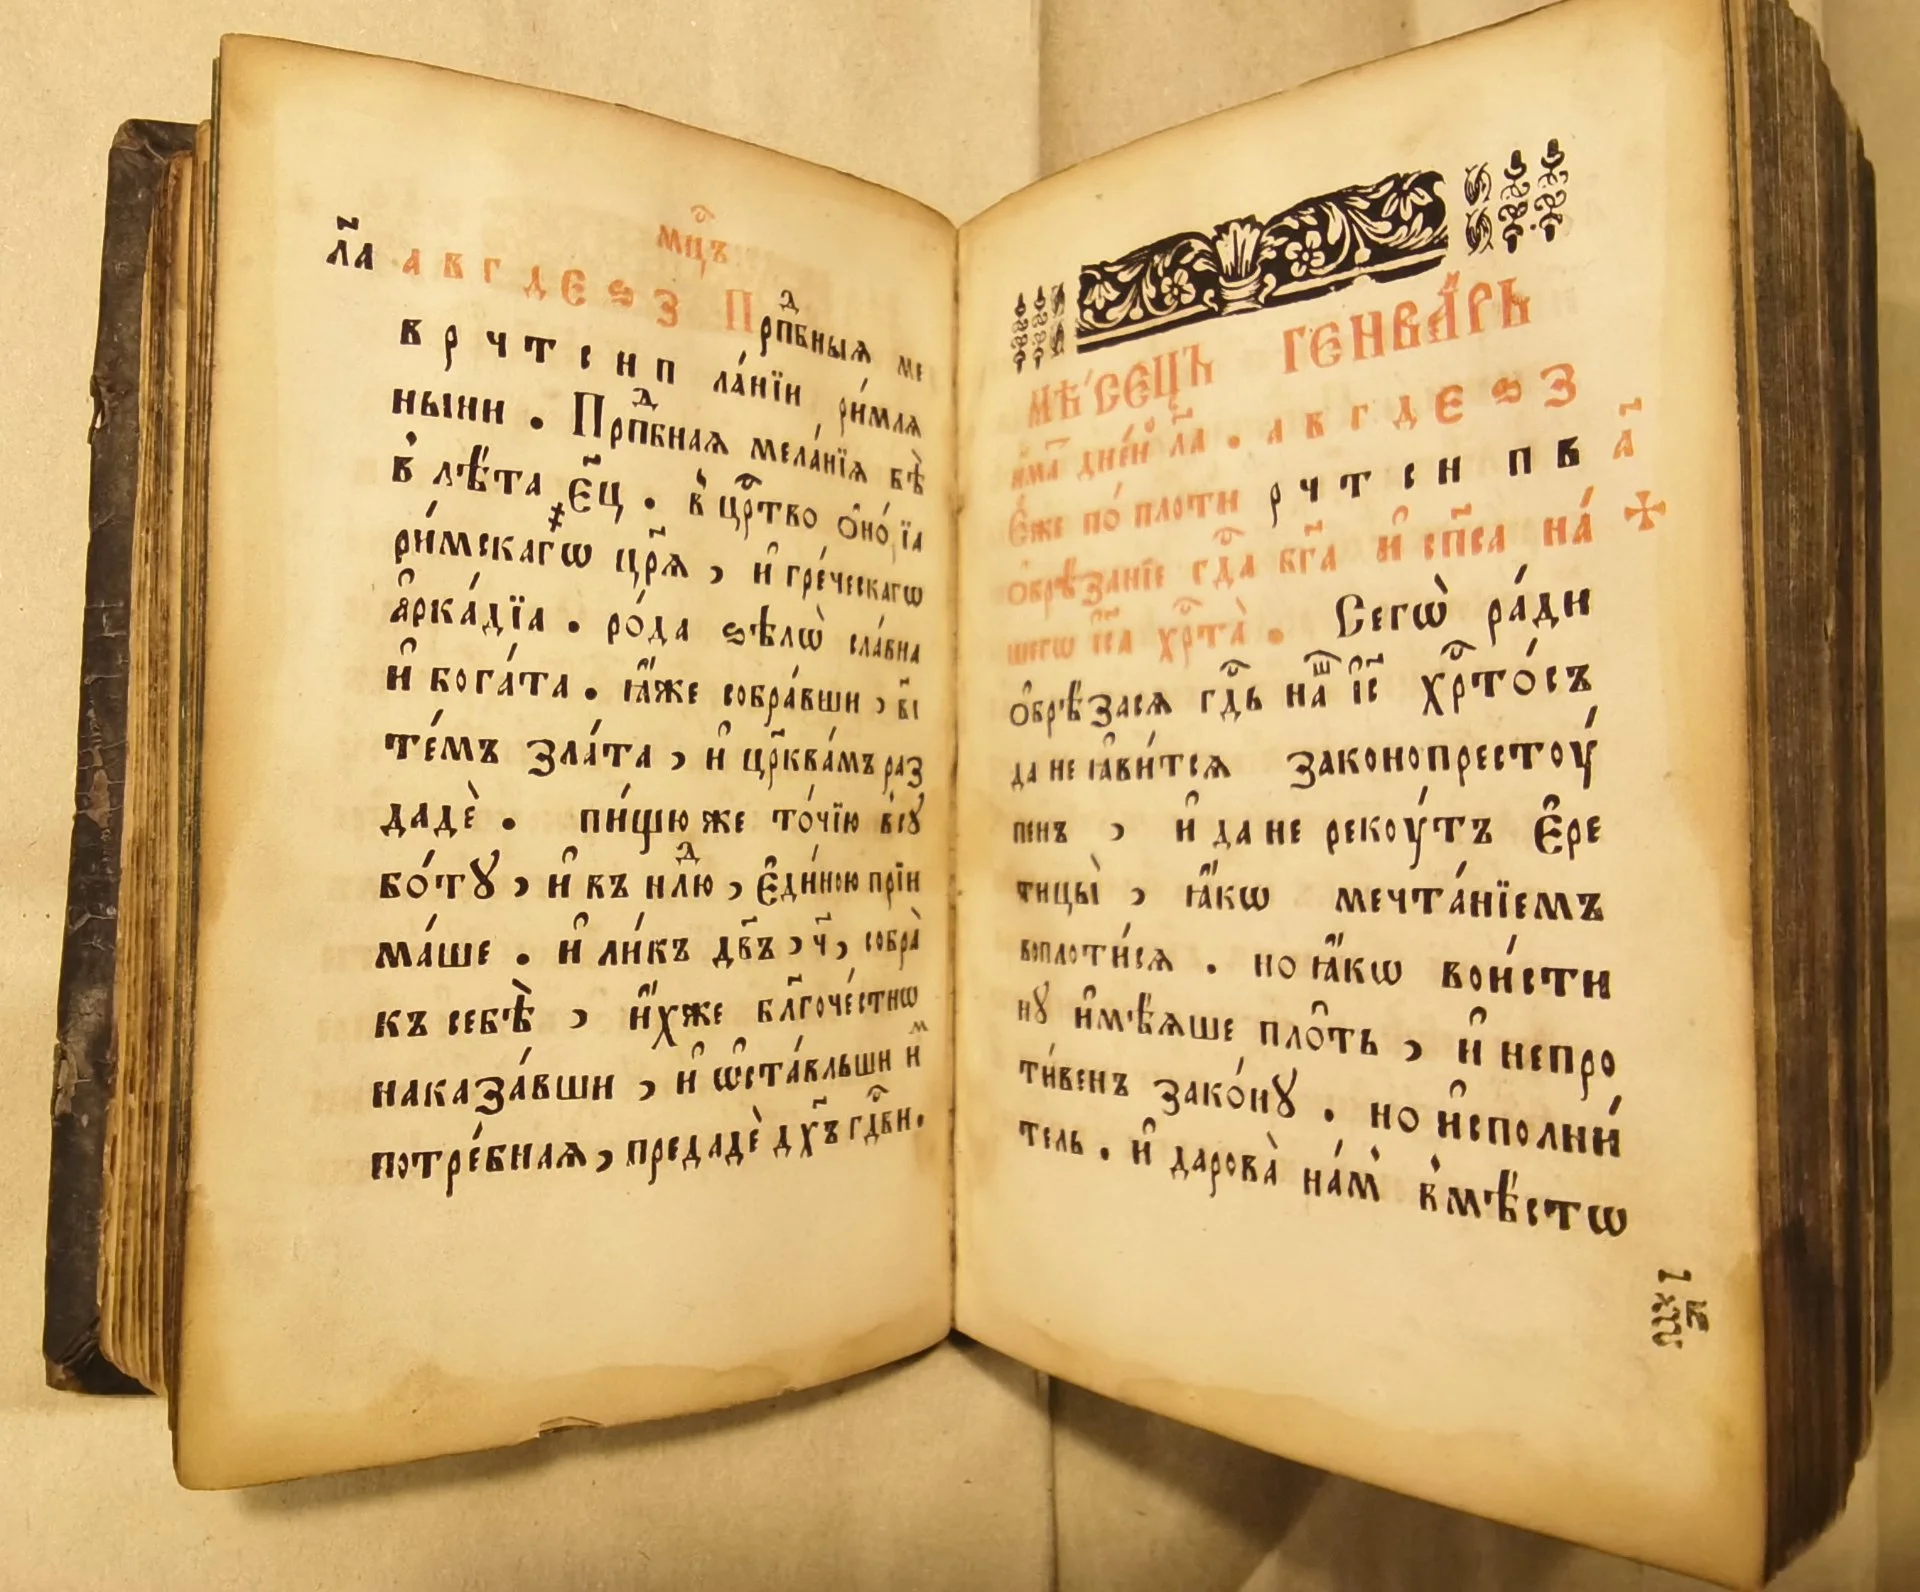 мцⷭ҇ъ
л҃а а в г д є ѕ з Прпⷣбныѧ ме
в р ч т с н п ла́нїи ри́млѧ
ныни . Прпⷣбнаѧ мела́нїѧ бѣ̀
в̾ лѣ́та ҂є҃ц . в̾ црⷭ҇тво ѻ҆но́рїа
ри́мскагѡ цр҃ѧ , и҆ гре́ческагѡ
а҆рка́дїа . ро́да ѕѣлѡ̀ сла́вна
и҆ бога́та . ꙗ҆́же собра́вши , в҃і
те́мъ зла́та , и҆ цр҃ква́мъ раз
дадѐ . пи́щю же то́чїю в̾ сꙋ
бо́тꙋ , и҆ въ нлⷣю , є҆ди́ною прїи
ма́ше . и҆ ли́къ дв҃ъ , ч҃ , собра̀
къ себѣ̀ , и҆́хже бл҃гоче́стнѡ
наказа́вши , и҆ ѡ҆ста́вльши иⷨ
потре́бнаѧ , предадѐ дх҃ъ гдⷭ҇ви .
мѣ́сецъ генва́рь
и҆́ма дне́й л҃а . а в г д є ѕ з
Є҆́же по́ плоти р ч т с н п в а҃
ѻ҆брѣ́занїе гдⷭ҇а бг҃а и҆ сп҃са на́
шегѡ і҆с҃а хрⷭ҇та̀ . Сегѡ̀ ра́ди
ѻ҆брѣ́засѧ гдⷭ҇ь наⷲ҇ і҆с҃ хрⷭ҇то́съ
да не ꙗ҆ви́тсѧ законопрестоу́
пенъ , и҆ да не рекоу́тъ є҆ре
тицы̀ , ꙗ҆́кѡ мечта́нїемъ
воплоти́сѧ . но ꙗ҆́кѡ вои́сти
нꙋ и҆мѣ́ѧше пло́ть , и҆ непро
ти́венъ зако́нꙋ . но и҆сполни́
тель . и҆ дарова̀ на́м̾ в̾мѣ́стѡ